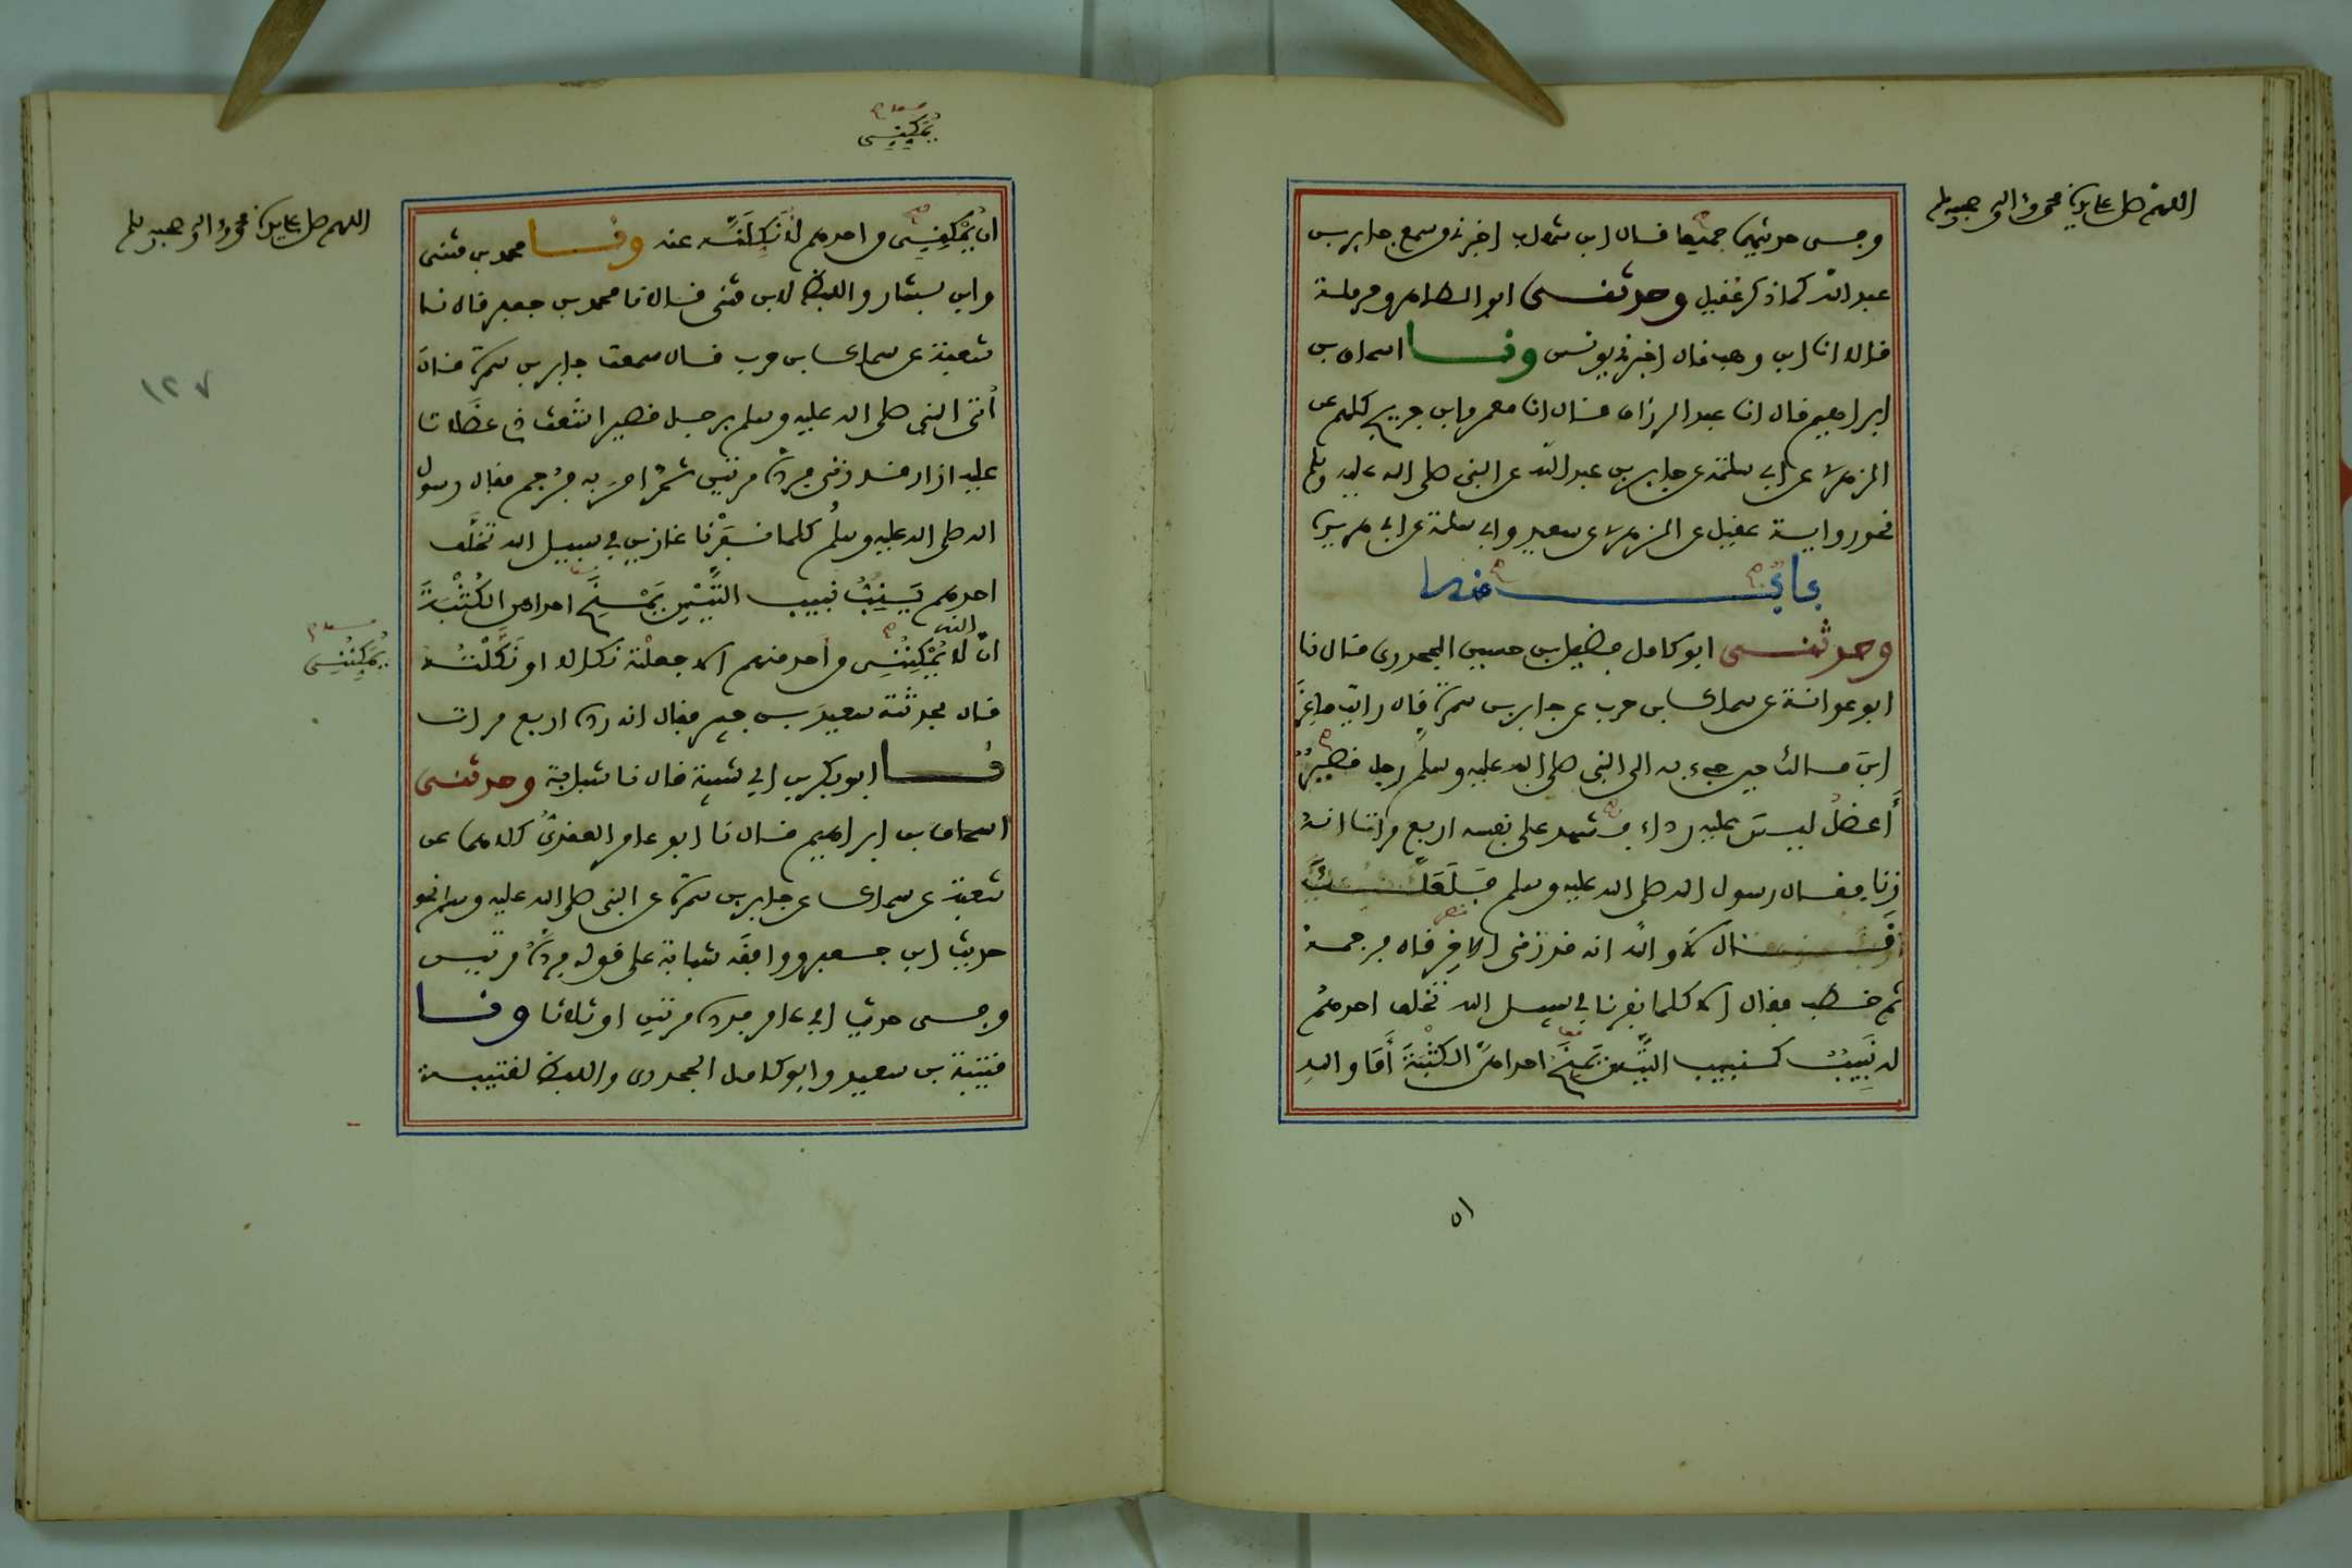 اللهم صل على سيدنا محمد وآله وصحبه وسلم
وفى حديثهما جميعا قال ابن شهاب اخبرنى من سمع جابر بن
عبد الله كما ذكر عقيل وحدثنى ابو الطاهر وحرملة
قالا انا ابن وهب قال اخبرنى يونس ونا اسحاق بن
ابراهيم قال انا عبد الرزاق قال انا معمر وابن جريج كلهم عن
الزهرى عن ابى سلمة عن جابر بن عبد الله عن النبى صلى الله عليه وسلم
نحو رواية عقيل عن الزهرى عن سعيد وابى سلمة عن ابى هريرة
وحدثنى ابو كامل فضيل بن حسين الجحدرى قال نا
ابو عوانة عن سماك بن حرب عن جابر بن سمرة قال رايت ماعز
ابن مالك حين جىء به الى النبى صلى الله عليه وسلم رجل قصير
أعضل ليس عليه رداء فشهد على نفسه اربع مرات انه
زنا فقال رسول الله صلى الله عليه وسلم فلعلك
قال لا والله انه قد زنى الاخر قال فرجمه
ثم خطب فقال الا كلما نفرنا فى سبيل الله تخلف احدهم
له نبيب كنبيب التيس يمنح احداهن الكثبة أما والله
٥١
يمكننى
اللهم صل على سيدنا محمد وآله وصحبه وسلم
ان يمكننى من احدهم لأنكلنه عنه ونا محمد بن مثنى
وابن بشار واللفظ لابن مثنى قالا نا محمد بن جعفر قال نا
شعبة عن سماك بن حرب قال سمعت جابر بن سمرة قال
أتى النبى صلى الله عليه وسلم برجل قصير اشعث ذى عضلات
عليه ازار قد زنى فرده مرتين ثم امر به فرجم فقال رسول
الله صلى الله عليه وسلم كلما نفرنا غازين فى سبيل الله تخلف
احدكم ينب نبيب التيس يمنح احداهن الكثبة
ان الله لا يمكننى من أحد منهم الا جعلته نكالا او نكلته
يمكننى
قال فحدثته سعيد بن جبير فقال انه رده اربع مرات
نا ابو بكر بن ابى شيبة قال نا شبابة وحدثنى
اسحاق بن ابراهيم قال نا ابو عامر العقدى كلاهما عن
شعبة عن سماك عن جابر بن سمرة عن النبى صلى الله عليه وسلم نحو
حديث ابن جعفر ووافقه شبابة على قوله فرده مرتين
وفى حديث ابى عامر فرده مرتين او ثلاثا ونا
قتيبة بن سعيد وابو كامل الجحدرى واللفظ لقتيبة
١٢٧